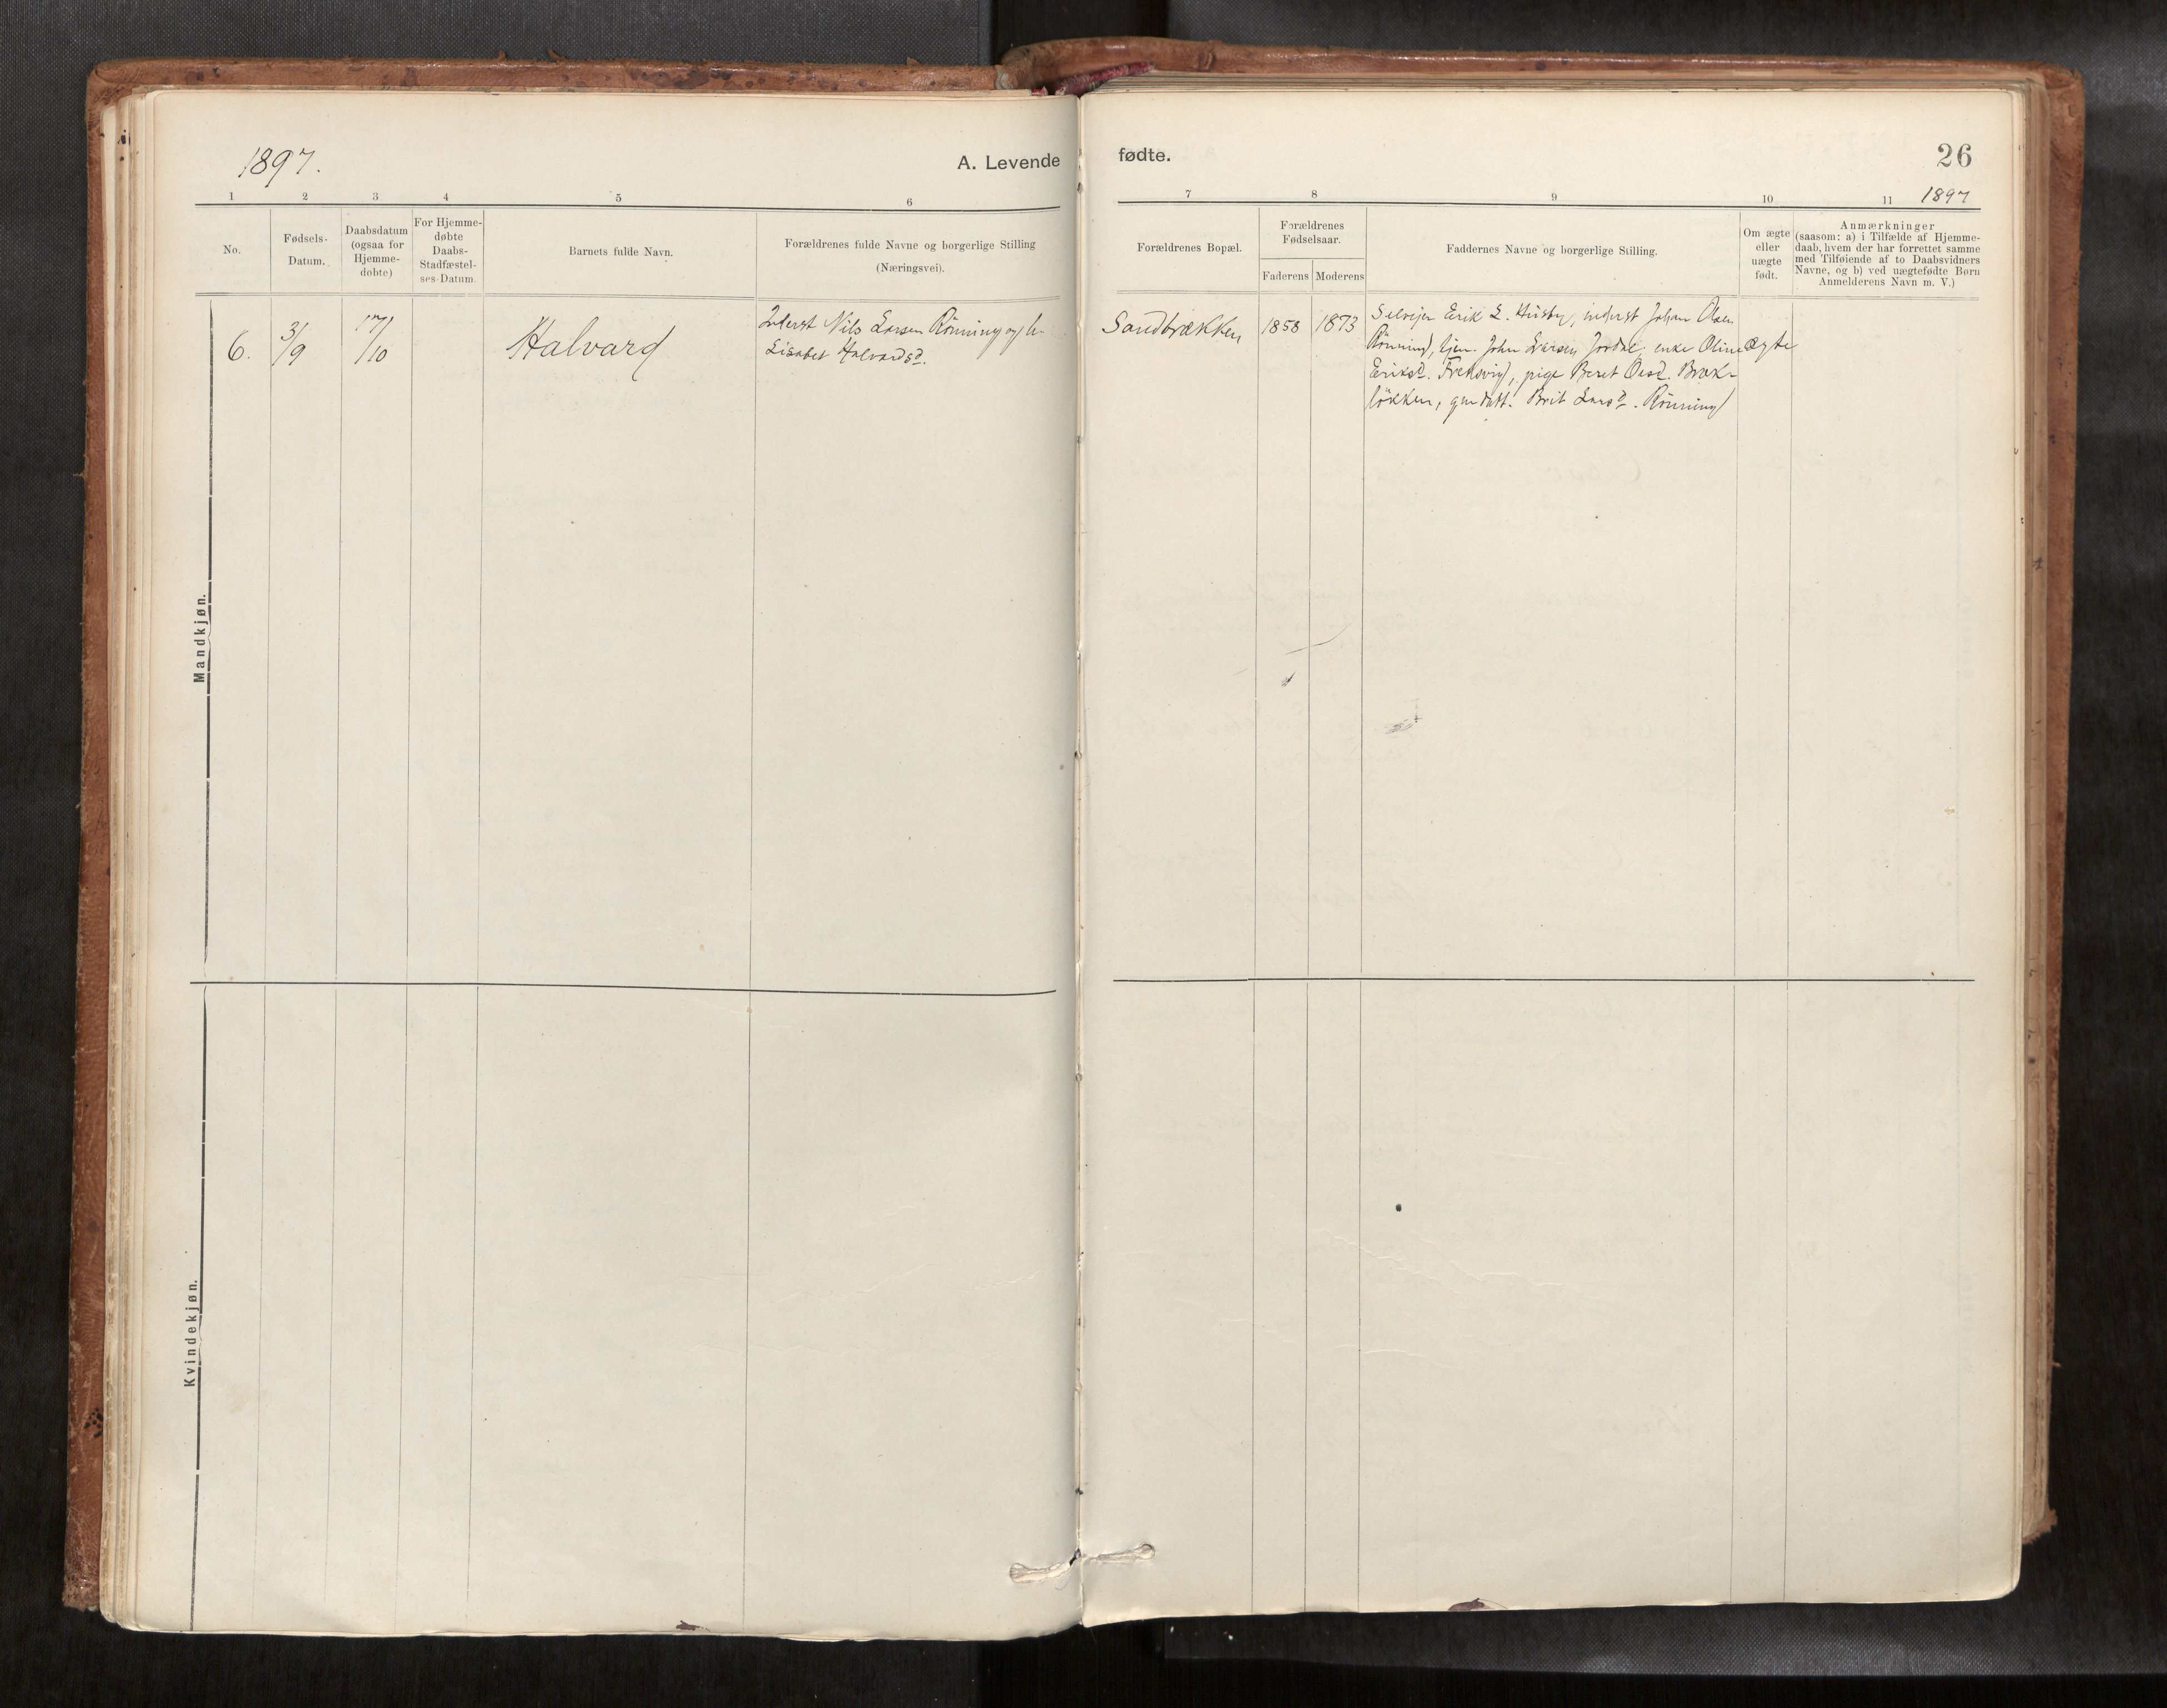 1897.
A. Levende
1 2 3 4 5 6
No.
Fødsels-
Datum.
Daabsdatum
(ogsaa for
Hjemme-
døbte)
For Hjemme-
døbte
Daabs-
Stadfæstel-
ses-Datum.
Barnets fulde Navn.
Forældrenes fulde Navne og borgerlige Stilling
(Næringsvei).
Mandkjøn.
6. 3/9 17/10 Halvard
Inderst Nils Larsen Rönning og h.
Lisabet Halvardsd.
Kvindekjøn.
fødte.
26
1897
7 8 9 10 11
Forældrenes Bopæl.
Forældrenes
Fødselsaar.
Faderens Moderens
Faddernes Navne og borgerlige Stilling.
Om ægte
eller
uægte
født.
Anmærkninger
(saasom: a) i Tilfælde af Hjemme-
daab, hvem der har forrettet samme
med Tilføiende af to Daabsvidners
Navne, og b) ved uægtefødte Børn
Anmelderens Navn m. V.)
Sandbrækken 1858 1873
Selvejer Erik L. Husby, inderst Johan Olsen
Rönning, tjen. John Larsen Jordal, enke Oline
Eriksd. Fredsvig, pige Beret Olsd. Bræk-
lökken, gmdatt. Brit Larsd. Rönning
ægte